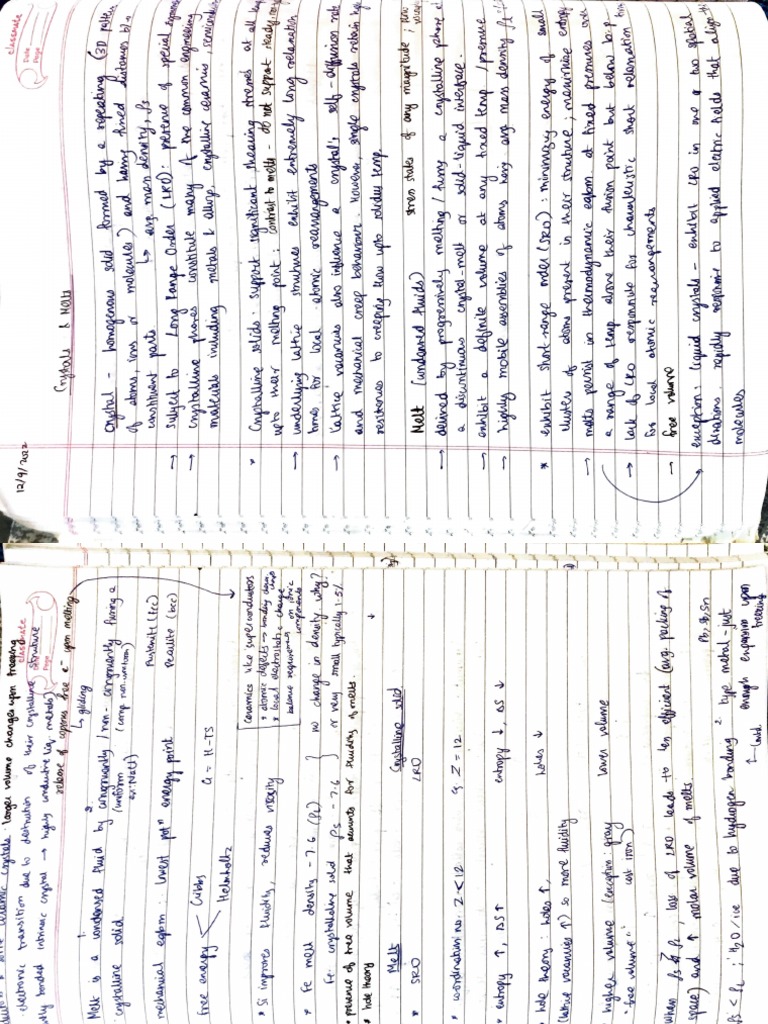 classmate
Date
Page
12/9/2022
Crystals & Melts
Crystal - homogenous solid formed by a repeating (3D pattern
of atoms, ions or molecules) and having fixed distances b/w
constituent parts ↳ avg mass density, ρs
→ subject to Long Range Order (LRO): presence of special
→ crystalline phases constitute many of the common engineering
materials including metals & alloys, crystalline ceramics, semiconductors
* Crystalline solids: support significant shearing stresses at all
upto their melting point; contrast to melts - do not support
→ underlying lattice structures exhibit extremely long relaxation
times for local atomic rearrangements
→ lattice vacancies also influence a crystal's self-diffusion rate
and mechanical creep behaviour. However, single crystals retain
resistance to creeping flow upto solidus temp.
Melt (condensed fluids) stress states of any magnitude;
→ derived by progressively melting/fusing a crystalline phase
a discontinuous crystal-melt or solid-liquid interface.
→ exhibit a definite volume at any fixed temp/pressure
→ highly mobile assemblies of atoms having avg mass density ρl
* exhibit short-range order (SRO): minimizing energy of small
clusters of atoms present in their structure; maximise entropy
→ melts persist in thermodynamic eqbm at fixed pressures over
a range of temp above their fusion point but below b.p.
→ lack of LRO responsible for characteristic short relaxation
for local atomic rearrangements
→ free volume
exception: liquid crystals - exhibit LRO in one or two spatial
directions. rapidly response to applied electric fields that align
molecules
ceramic crystals. larger volume changes upon freezing
electronic transition due to destruction of their crystalline structure
bonded intrinsic crystal → highly conductive liq. metals)
classmate
Page
release of copious free e⁻ upon melting
↳ gliding
Melt is a condensed fluid by 1. congruently / 2. non-congruently fusing a
crystalline solid. (uniform ex: NaCl) (comp. non-uniform)
mechanical eqbm: lowest potⁿ energy point Austenite (fcc)
Pearlite (bcc)
free energy Gibbs G = H-TS
Helmholtz
Ceramics like superconductors
* atomic defects → bonding
* local electrostatic charge
balance requirements on ionic
components
* Si improves fluidity, reduces viscosity
* Fe melt density - 7.6 (ρl) } no change in density why?
Fe: crystalline solid ρs - 7.6 } or very small typically 1.5%
* presence of free volume that accounts for fluidity of melts.
* hole theory
Melt Crystalline solid
* SRO LRO
* coordination no. Z<12 Z = 12
* entropy ↑, ΔS↑ entropy ↓, ΔS ↓
* hole theory: holes ↑, holes ↓
(lattice vacancies ↑) so more fluidity
* higher volume (exception: gray cast iron) lower volume
"free volume"
when ρs ≠ ρl, loss of LRO leads to less efficient (avg. packing of
space) and ↑ molar volume of melts. Pb, Sb, Sn
ρs < ρl; H2O/ice due to hydrogen bonding 2. type metal - just
enough expansion upon
freezing